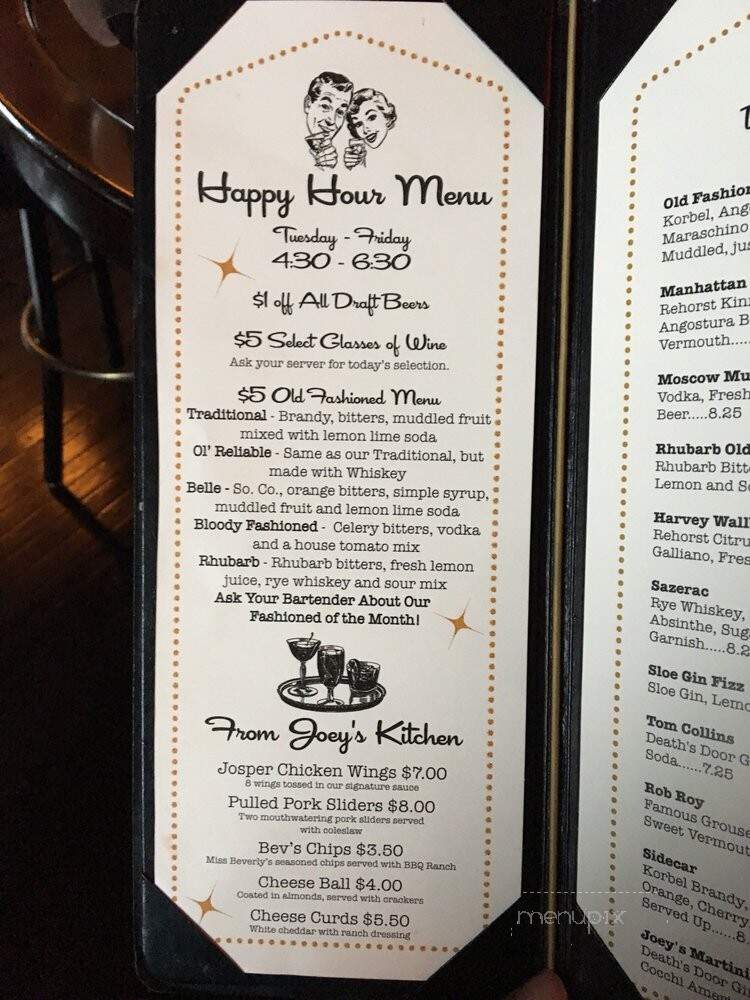 Happy Hour Menu
Tuesday - Friday
4:30 - 6:30
$1 off All Draft Beers
$5 Select Glasses of Wine
Ask your server for today's selection.
$5 Old Fashioned Menu
Traditional - Brandy, bitters, muddled fruit
mixed with lemon lime soda
Ol' Reliable - Same as our Traditional, but
made with Whiskey
Belle - So. Co., orange bitters, simple syrup,
muddled fruit and lemon lime soda
Bloody Fashioned - Celery bitters, vodka
and a house tomato mix
Rhubarb - Rhubarb bitters, fresh lemon
juice, rye whiskey and sour mix
Ask Your Bartender About Our
Fashioned of the Month!
From Joey's Kitchen
Josper Chicken Wings $7.00
8 wings tossed in our signature sauce
Pulled Pork Sliders $8.00
Two mouthwatering pork sliders served
with coleslaw
Bev's Chips $3.50
Miss Beverly's seasoned chips served with BBQ Ranch
Cheese Ball $4.00
Coated in almonds, served with crackers
Cheese Curds $5.50
White cheddar with ranch dressing
Old Fashion
Korbel, Ang
Maraschino
Muddled, jus
Manhattan
Rehorst Kin
Angostura B
Vermouth.....
Moscow Mu
Vodka, Fresh
Beer.....8.25
Rhubarb Old
Rhubarb Bitt
Lemon and So
Harvey Wall
Rehorst Citru
Galliano, Fres
Sazerac
Rye Whiskey,
Absinthe, Sug
Garnish.....8.2
Sloe Gin Fizz
Sloe Gin, Lemo
Tom Collins
Death's Door G
Soda......7.25
Rob Roy
Famous Grouse
Sweet Vermout
Sidecar
Korbel Brandy,
Orange, Cherry
Served Up......8
Joey's Martini
Death's Door Gi
Cocchi Amer
menupix